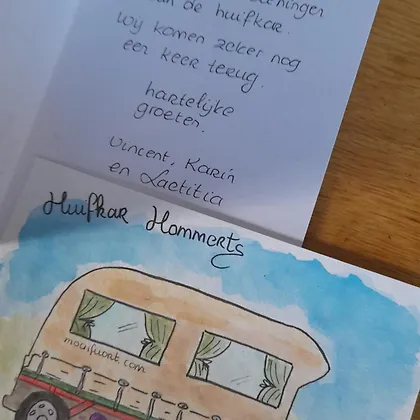 van de huifkar.
Wij komen zeker nog
een keer terug.
hartelijke
groeten.
Vincent, Karin
en Laetitia
Huifkar Hommerts